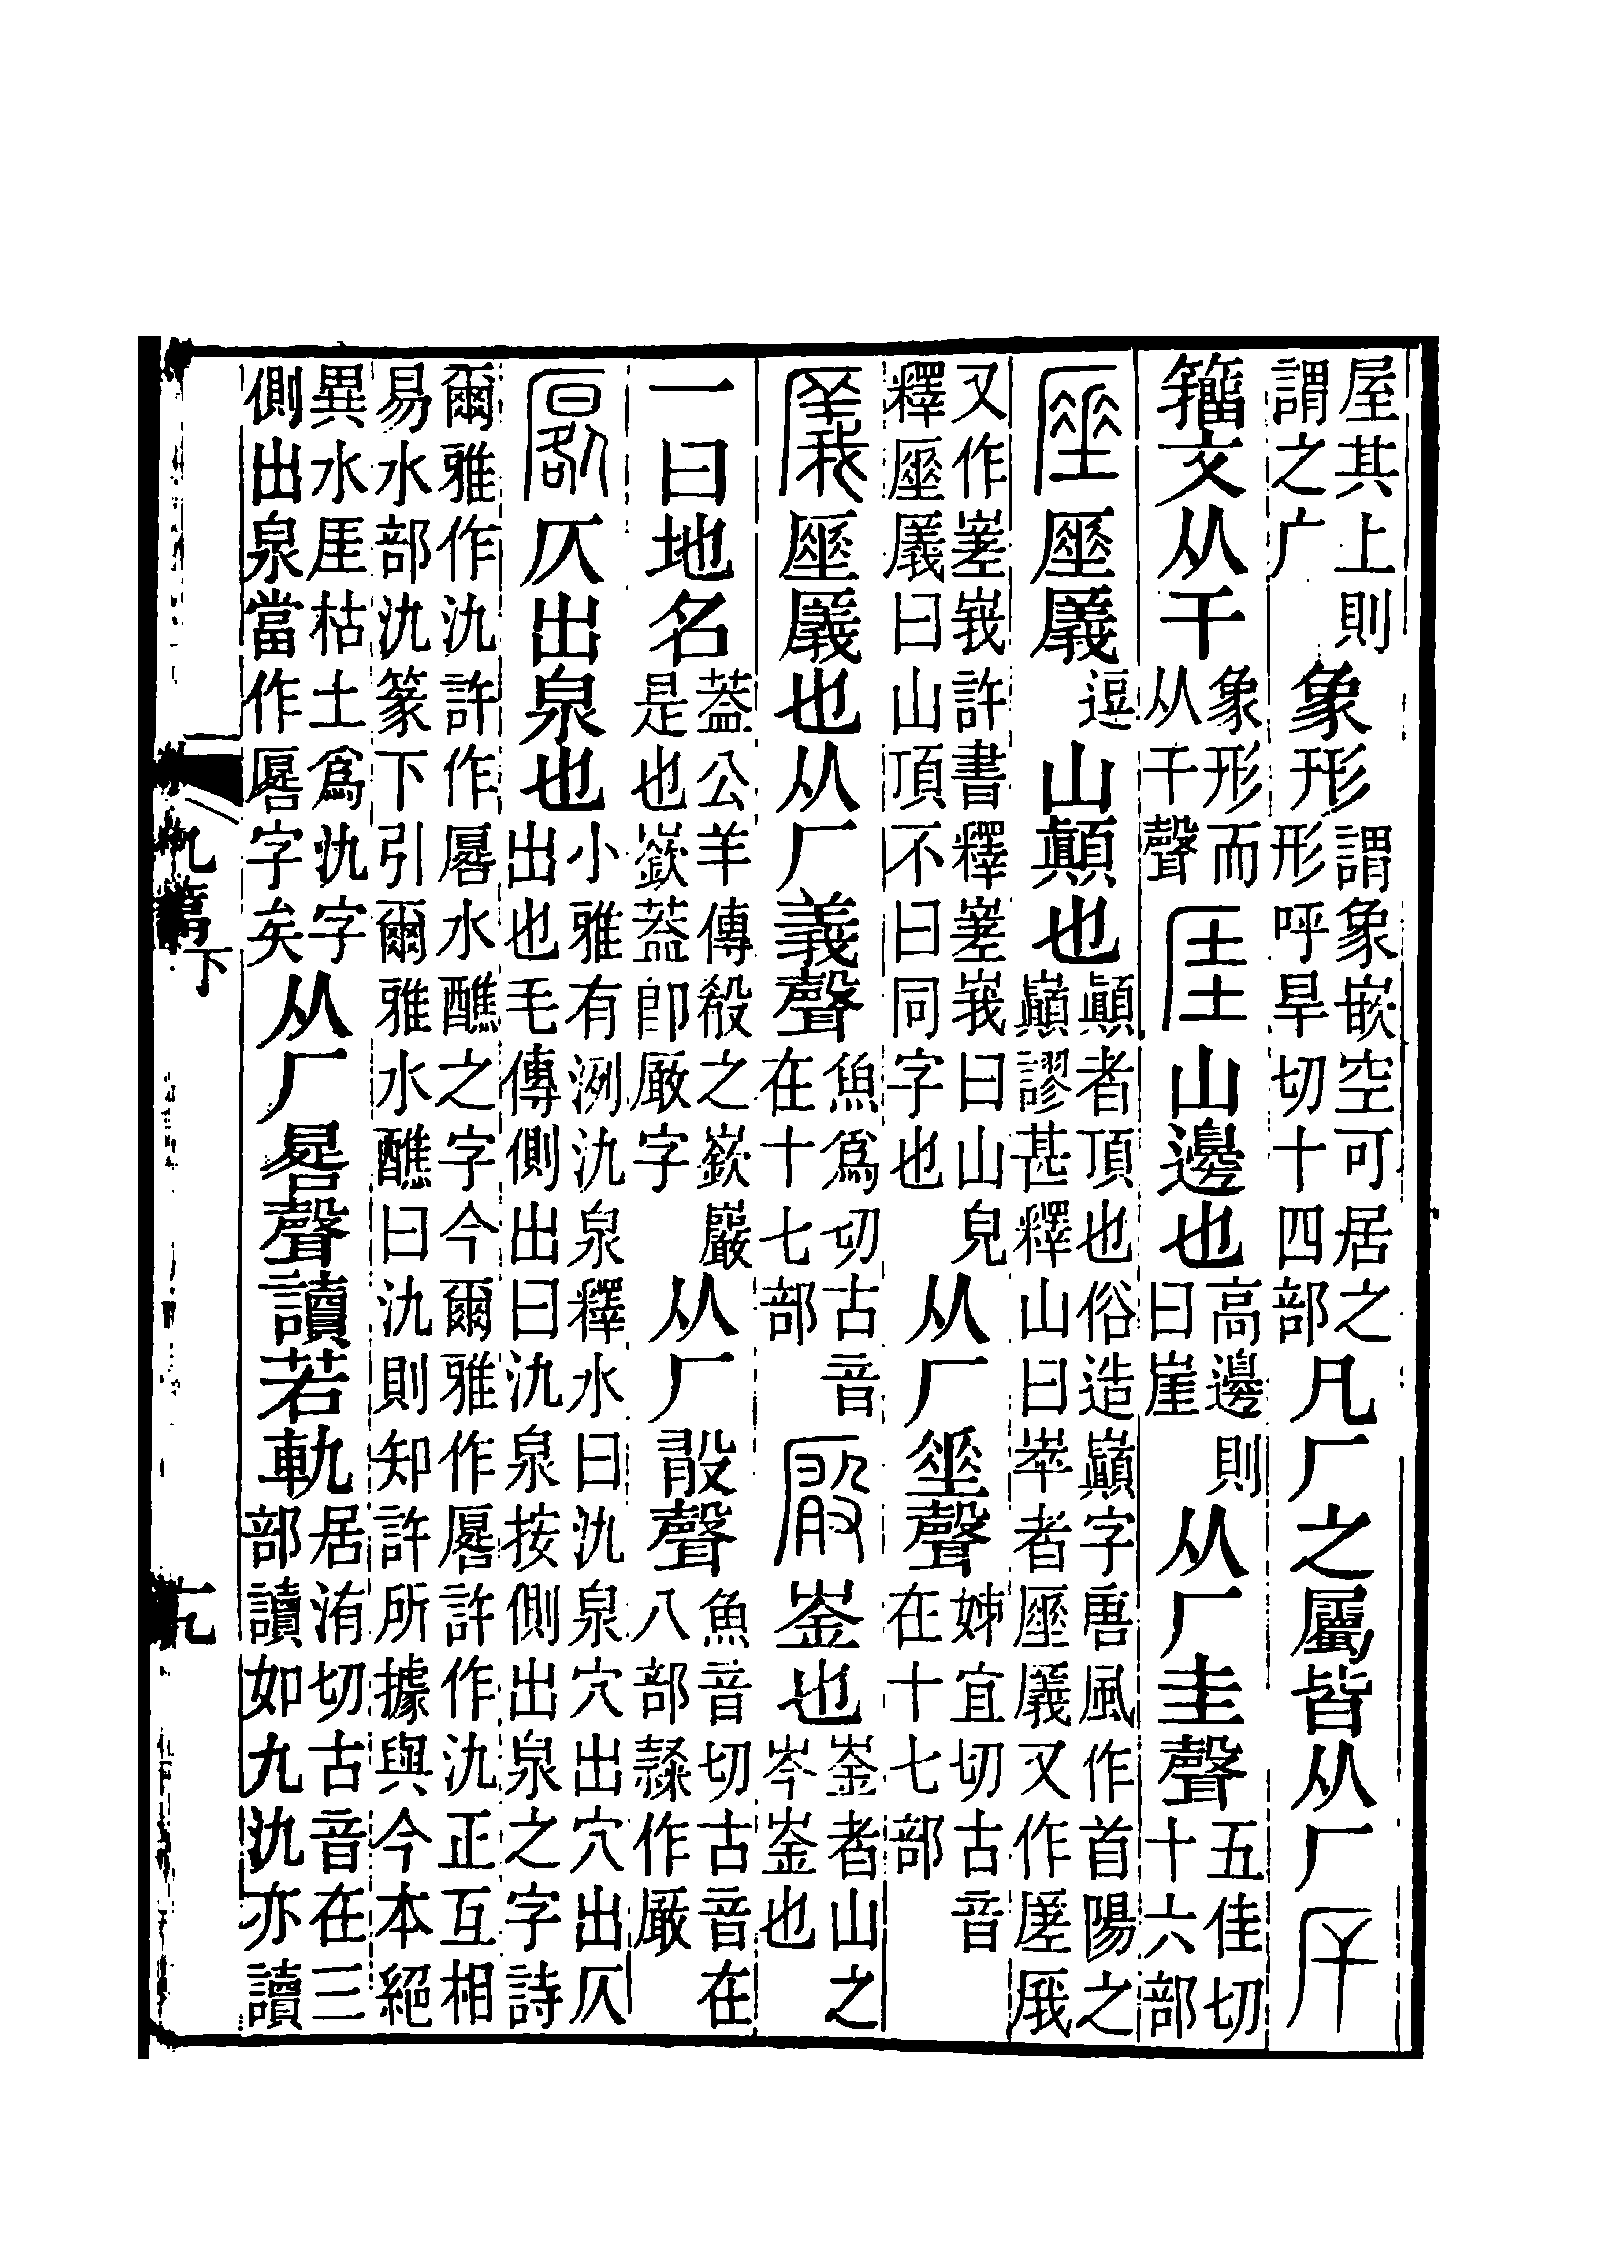 屋其上則
謂之广
象形
謂象嵌空可居之
形呼旱切十四部
凡厂之屬皆从厂
厈
籒文从干
象形而
从干聲
厓
山邊也
高邊則
曰崖
从厂圭聲
五佳切
十六部
厜
厜㕒
逗
山顚也
顚者頂也俗造巔字唐風作首陽之
巔謬甚釋山曰崒者厜㕒又作
又作嵳峩許書釋嵳峩曰山皃
釋厜㕒曰山頂不曰同字也
从厂𡍮聲
姊宜切古音
在十七部
㕒
厜㕒也从厂義聲
魚爲切古音
在十七部
厰
崟也
崟者山之
岑崟也
一曰地名
蓋公羊傳殽之嶔巖
是也嶔蓋卽厰字
从厂𣪏聲
魚音切古音在
八部隷作厰
厬
仄出泉也
小雅有洌氿泉釋水曰氿泉穴出穴出仄
出也毛傳側出曰氿泉按側出泉之字詩
爾雅作氿許作厬水醮之字今爾雅作厬許作氿正互相
易水部氿篆下引爾雅水醮曰氿則知許所據與今本絕
異水厓枯土爲氿字
側出泉當作厬字矣
从厂晷聲讀若軌
居洧切古音在三
部讀如九氿亦讀
九篇下